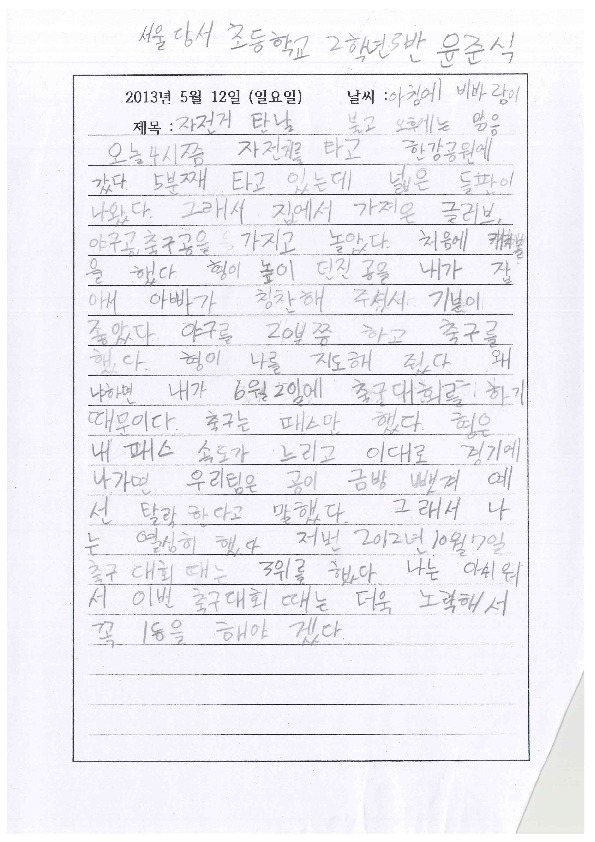 서울 당서 초등학교 2학년 3반 윤준식
2013년 5월 12일 (일요일) 날씨 : 아침에 비바람이
제목 : 자전거 탄 날 불고 오후에는 맑음
오늘 4시쯤 자전거를 타고 한강공원에
갔다. 5분째 타고 있는데 넓은 들판이
나왔다. 그래서 집에서 가져온 글러브,
야구공, 축구공을 가지고 놀았다. 처음에 캐치볼
을 했다 형이 높이 던진 공을 내가 잡
아서 아빠가 칭찬해 주셔서 기분이
좋았다 야구를 20분쯤 하고 축구를
했다. 형이 나를 지도해 줬다 왜
냐하면 내가 6월 2일에 축구대회를 하기
때문이다. 축구는 패스만 했다. 형은
내 패스 속도가 느리고 이대로 경기에
나가면 우리팀은 공이 금방 뺏겨 예
선 탈락 한다고 말했다. 그래서 나
는 열심히 했다 저번 2012년 10월 7일
축구 대회 때는 3위를 했다. 나는 아쉬워
서 이번 축구대회 때는 더욱 노력해서
꼭 1등을 해야 겠다.